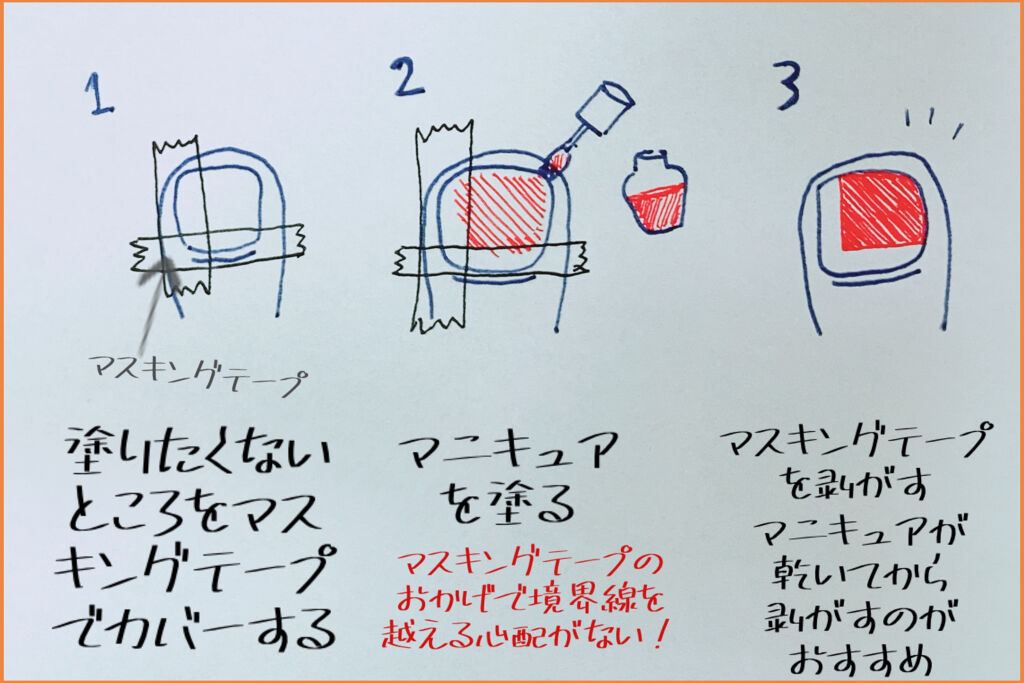 1
マスキングテープ
塗りたくない
ところをマス
キングテープ
でカバーする
2
マニキュア
を塗る
マスキングテープの
おかげで境界線を
越える心配がない!
3
マスキングテープ
を剥がす
マニキュアが
乾いてから
剥がすのが
おすすめ